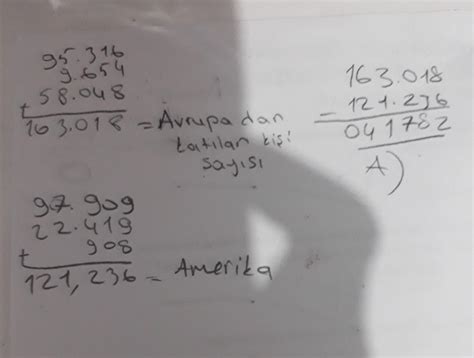 95.316
9.654
+ 58.048
163.018 = Avrupadan
katılan kişi
sayısı
163.018
- 121.236
041782
A)
97.909
22.419
+ 908
121,236 = Amerika